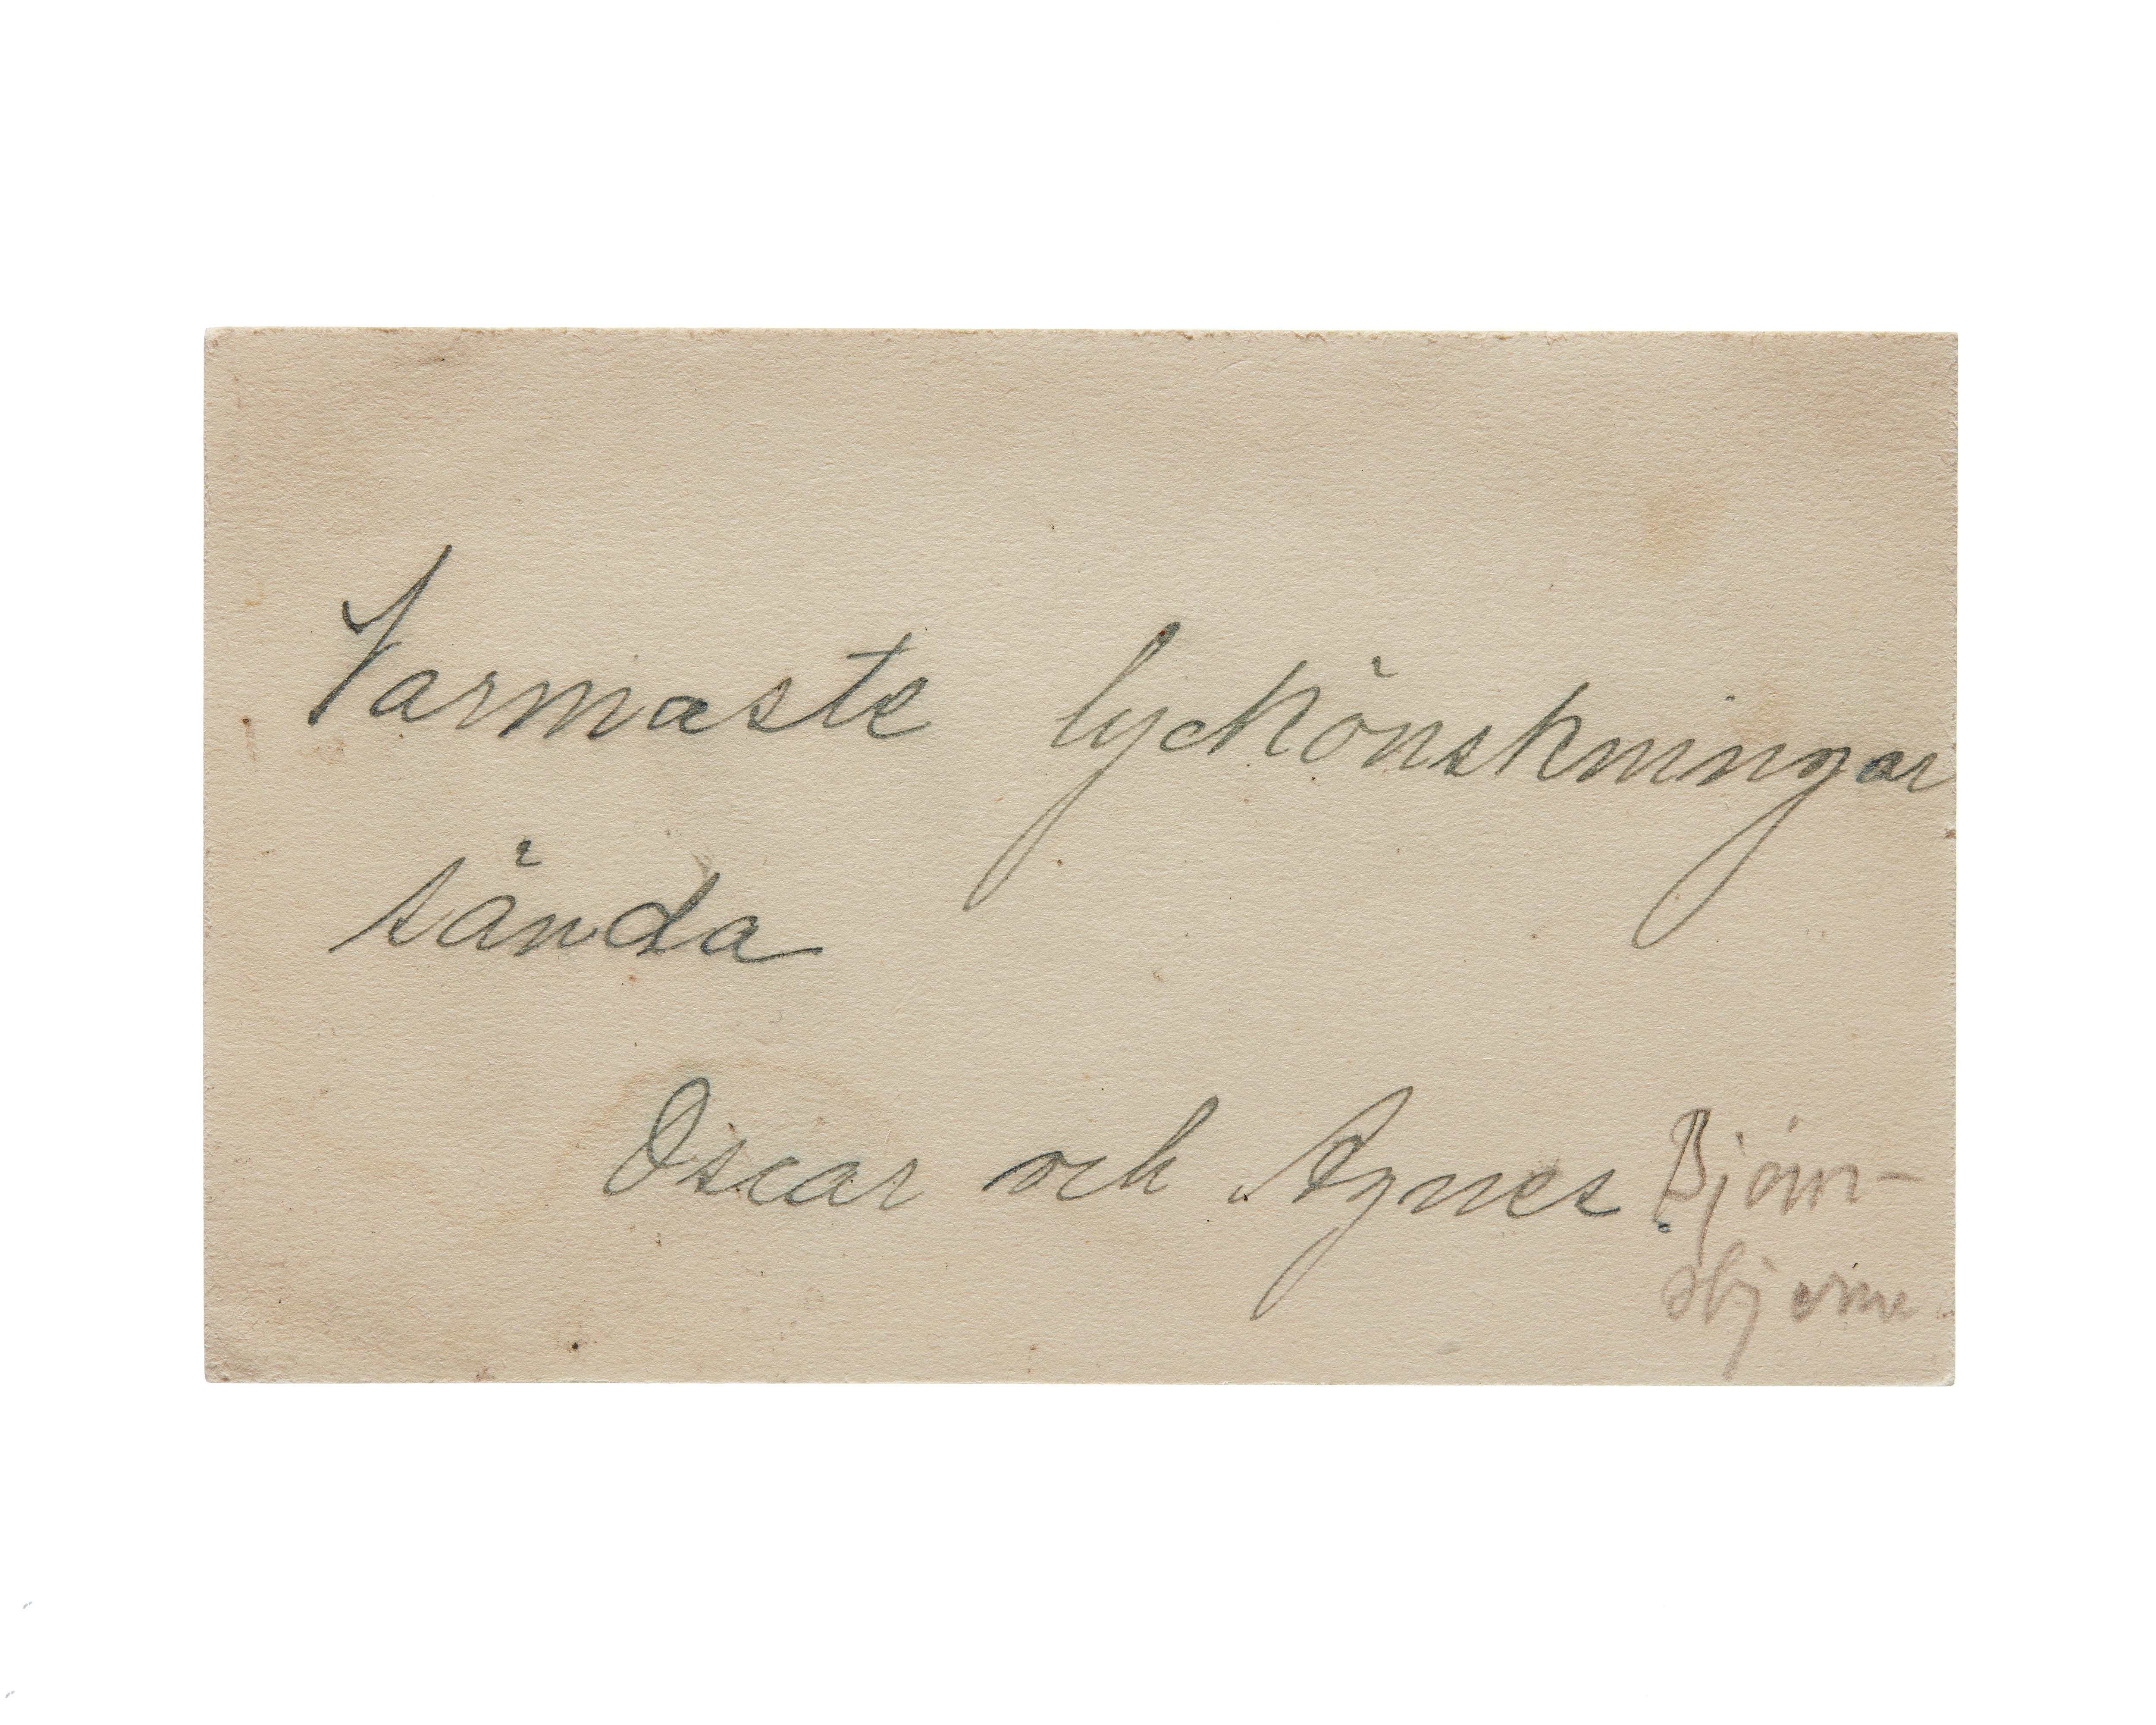 Varmaste lyckönskningar
sända
Oscar och Agnes. Björn-
stjerne